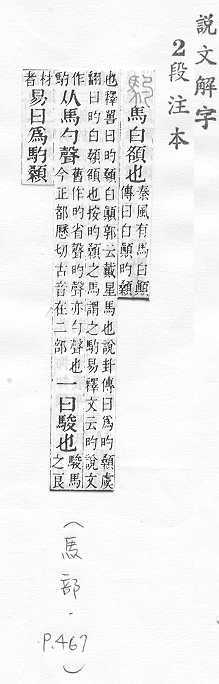 說文解字
2段注本
馰 馬白頟也 秦風有馬白顚
傳曰白顚旳顙
也釋嘼曰旳顙白顚郭云戴星馬也說卦傳曰爲旳顙虞
翻曰旳白顙頟也按旳顙之馬謂之馰易釋文云旳說文
作馰 从馬勺聲 舊作旳省聲旳聲亦勺聲也
今正都歷切古音在二部 一曰駿也 駿馬之良
材者 易曰爲馰顙
（馬部．P.467）